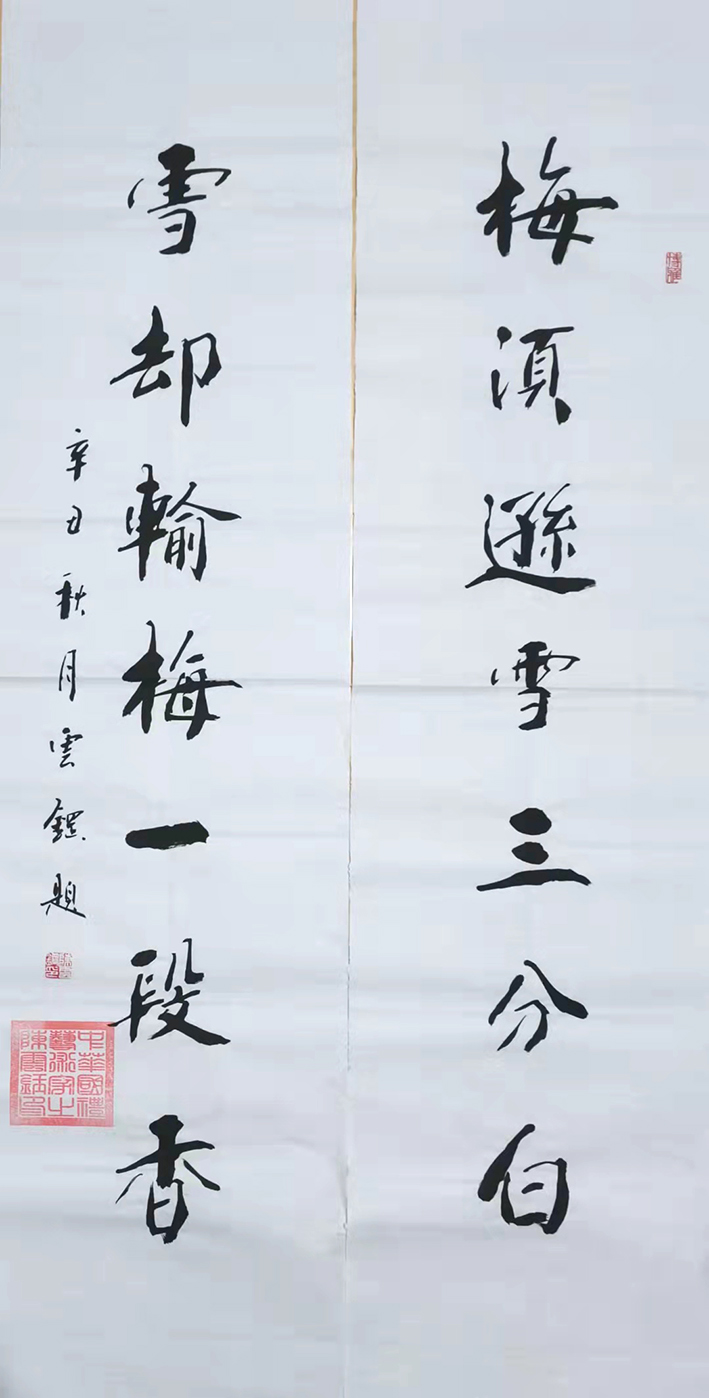 梅湏遜雪三分白
雪却輸梅一段香
辛丑秋月雲題
中華國禮
藝術家之
陳雲印